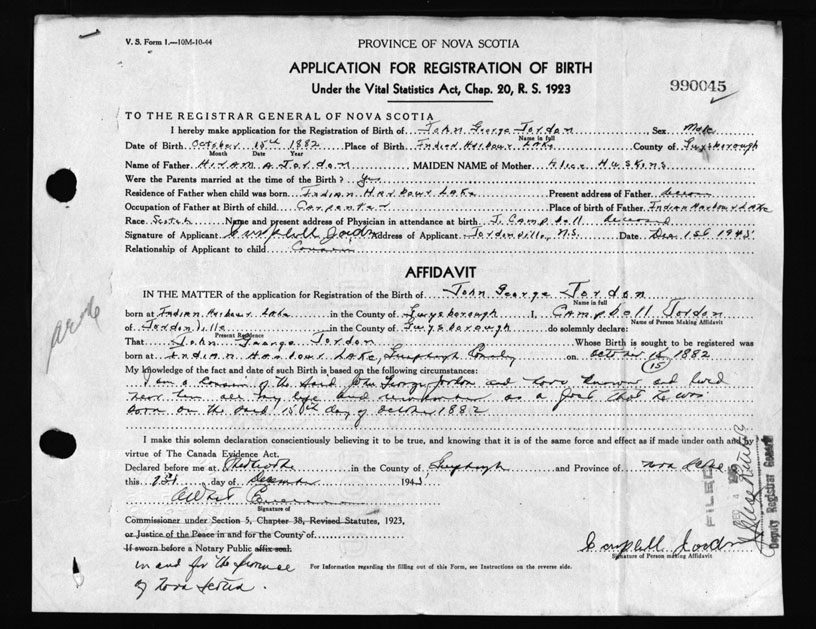 V. S. Form 1.—10M-10-44
PROVINCE OF NOVA SCOTIA
APPLICATION FOR REGISTRATION OF BIRTH
Under the Vital Statistics Act, Chap. 20, R. S. 1923
990045
TO THE REGISTRAR GENERAL OF NOVA SCOTIA
I hereby make application for the Registration of Birth of John George Jordon Sex Male
Name in full
Date of Birth October 15th 1882 Place of Birth Indian Harbour Lake County of Guysborough
Month Date Year
Name of Father Hiram A Jordon MAIDEN NAME of Mother Alice Huskins
Were the Parents married at the time of the Birth? yes
Residence of Father when child was born Indian Harbour Lake Present address of Father
Occupation of Father at Birth of child Carpenter Place of birth of Father Indian Harbour Lake
Race Scotch Name and present address of Physician in attendance at birth J. Campbell
Signature of Applicant Campbell Jordon Address of Applicant Jordonville, N.S. Date Dec 1st 1945
Relationship of Applicant to child Cousin
AFFIDAVIT
IN THE MATTER of the application for Registration of the Birth of John George Jordon
Name in full
born at Indian Harbour Lake in the County of Guysborough I, Campbell Jordon
Name of Person Making Affidavit
of Jordonville in the County of Guysborough do solemnly declare:
Present Residence
That John George Jordon Whose Birth is sought to be registered was
born at Indian Harbour Lake, County on October 15 1882
(15)
My knowledge of the fact and date of such Birth is based on the following circumstances:
I am a cousin of the said John George Jordon and have known and lived
near him all my life and as a fact that he was
born on the said 15th day of October 1882
I make this solemn declaration conscientiously believing it to be true, and knowing that it is of the same force and effect as if made under oath and by
virtue of The Canada Evidence Act.
Declared before me at in the County of and Province of Nova Scotia
this day of December 1945
Signature of
Commissioner under Section 5, Chapter 38, Revised Statutes, 1923,
or Justice of the Peace in and for the County of
If sworn before a Notary Public affix seal.
in and for the Province
of Nova Scotia.
For Information regarding the filling out of this Form, see Instructions on the reverse side.
Campbell Jordon
Signature of Person making Affidavit
FILED
Deputy Registrar General